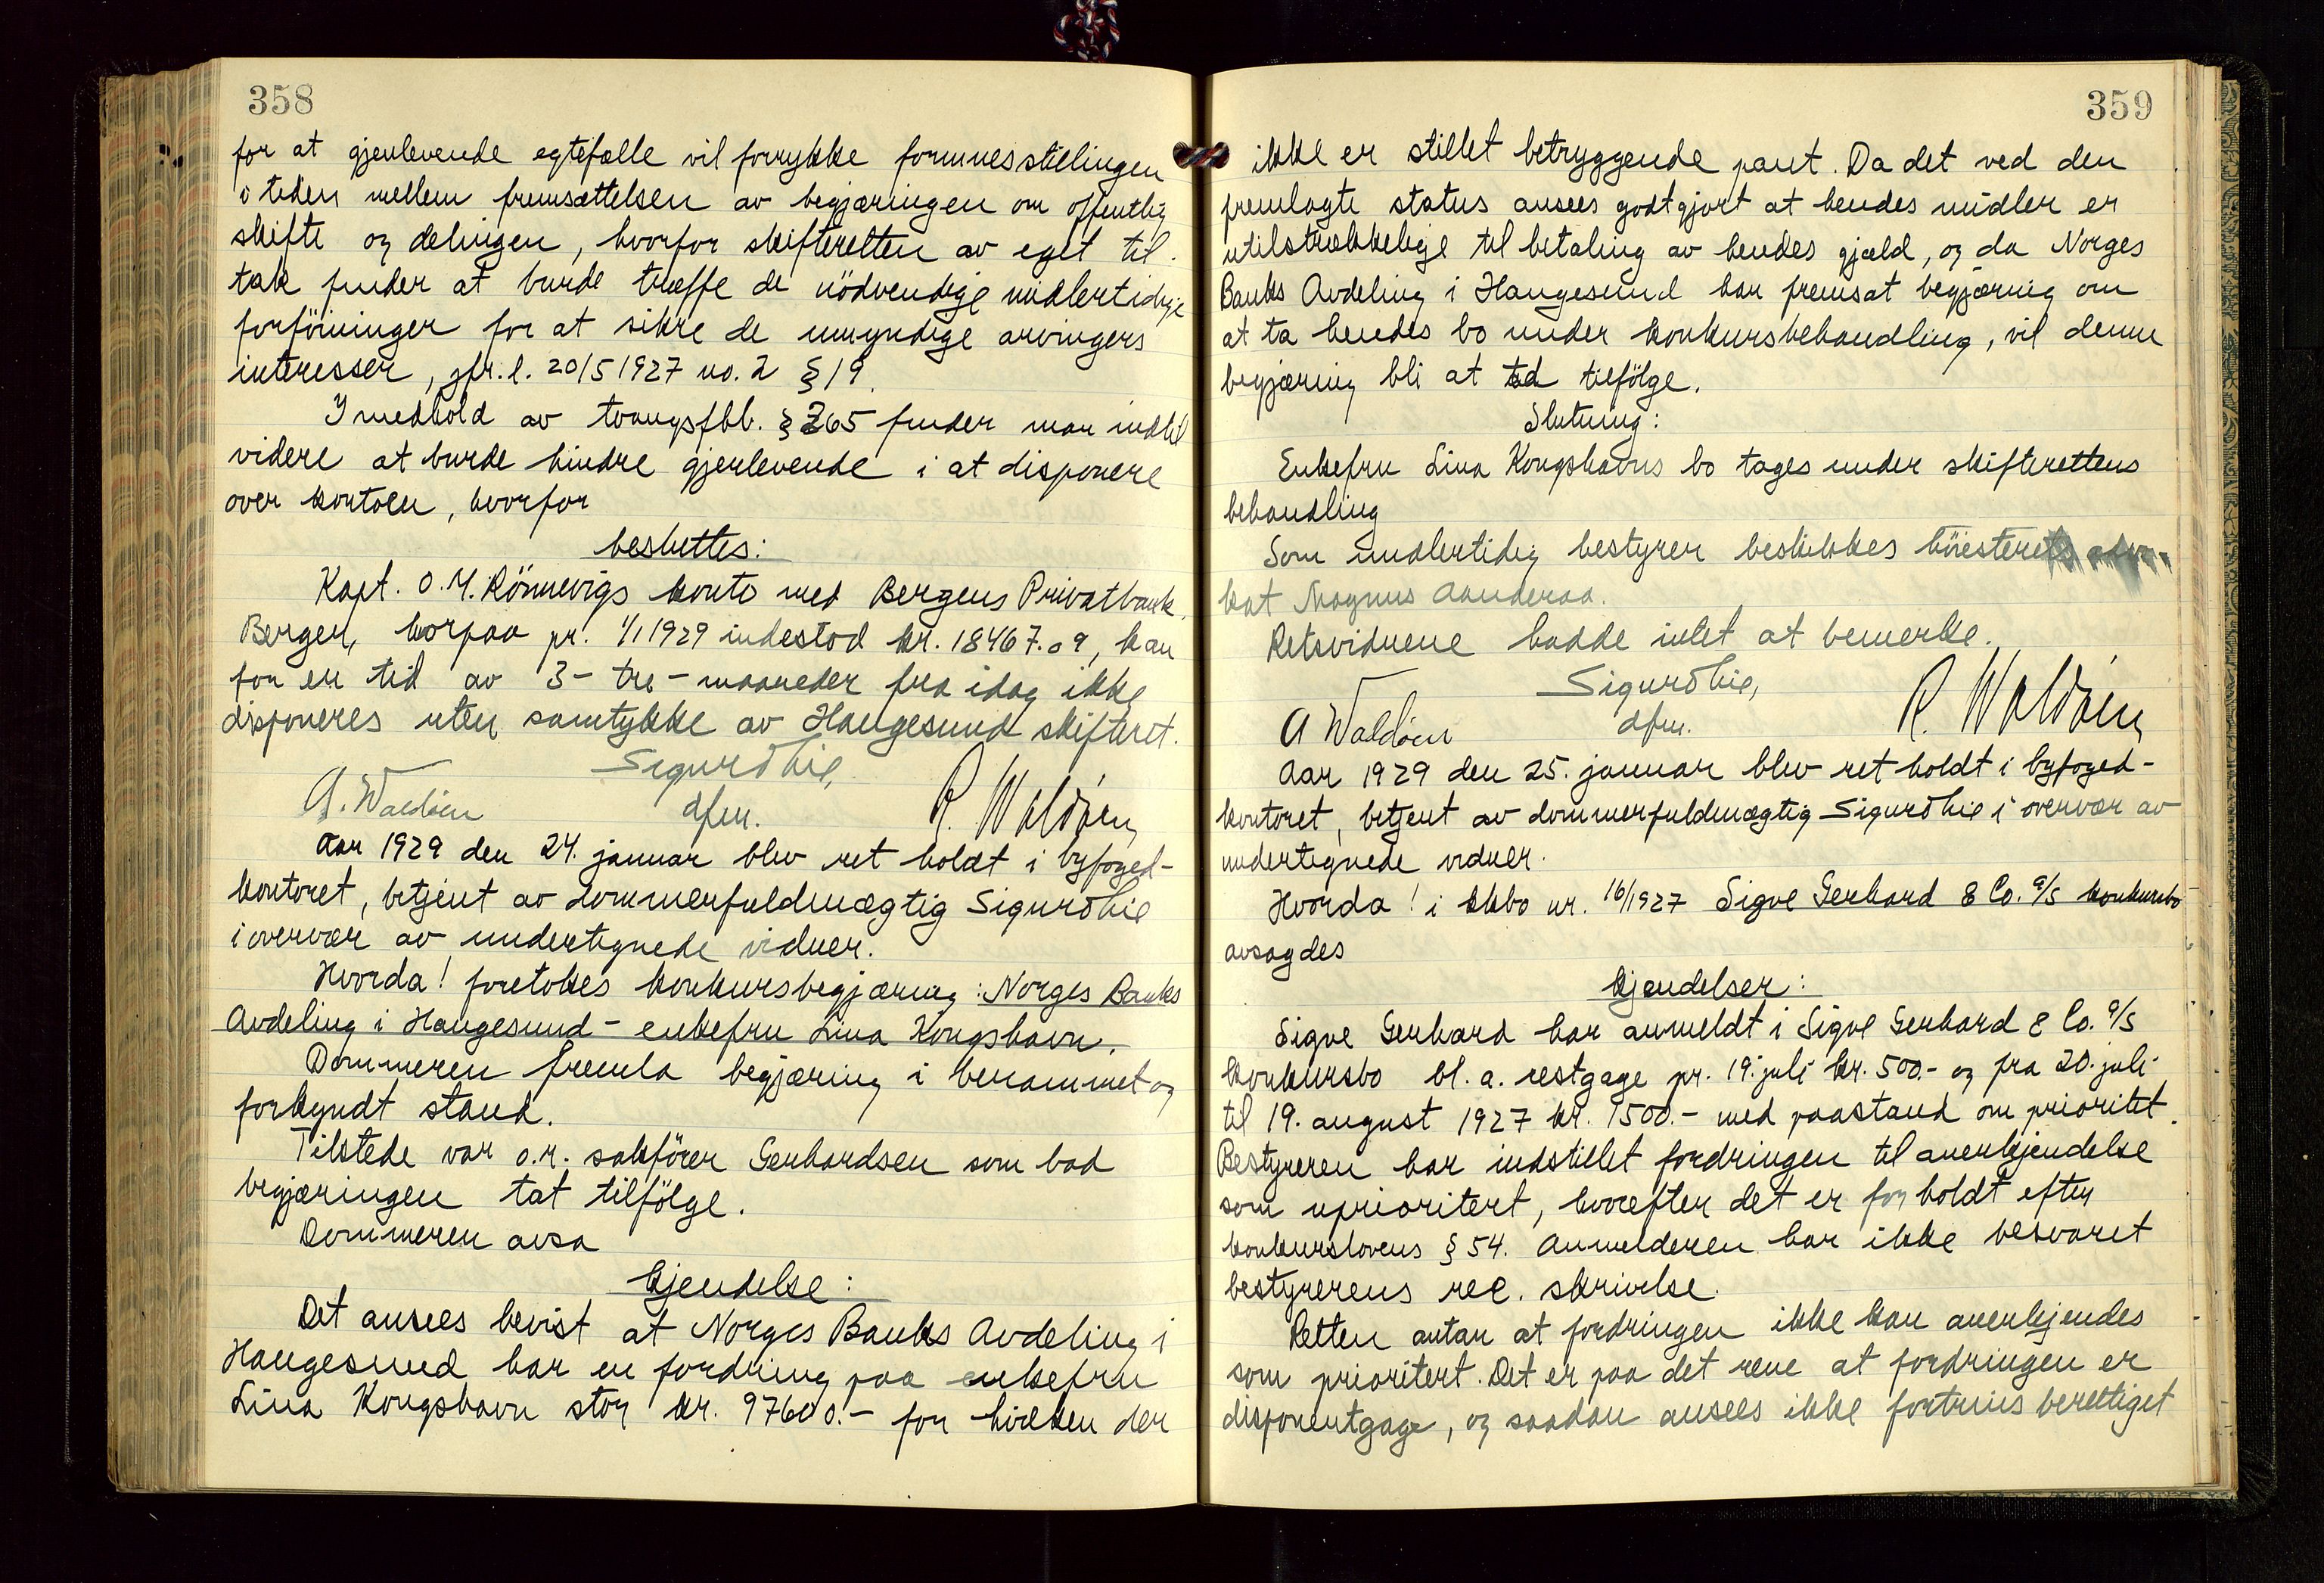 358
for at gjenlevende egtefælle vil forrykke formuesstillingen
i tiden mellem fremsættelsen av begjæringen om offentlig
skifte og delingen, hvorfor skifteretten av eget til-
tak finder at burde træffe de nödvendige midlertidige
forföininger for at sikre de umyndige arvingers
interesser, jfr. l. 20/5 1927 no. 2 § 19.
I medhold av tvangsfbl. § 265 finder man indtil
videre at burde hindre gjenlevende i at disponere
over kontoen, hvorfor
besluttes:
Kapt. O. M. Rönnevigs konto med Bergens Privatbank
Bergen, hvorpaa pr. 1/1 1929 indestod kr. 18467.09, kan
for en tid av 3 - tre - maaneder fra idag ikke
disponeres uten samtykke av Haugesund skifteret.
Sigurd Lie,
A. Waldöen dfm. R. Waldöen
Aar 1929 den 24. januar blev ret holdt i byfoged-
kontoret, betjent av dommerfuldmægtig Sigurd Lie
i overvær av undertegnede vidner.
Hvorda! foretokes konkursbegjæring: Norges Banks
Avdeling i Haugesund - enkefru Lina Kongshavn.
Dommeren fremla begjæring i berammet og
forkyndt stand.
Tilstede var o.r. sakförer Gerhardsen som bad
begjæringen tat tilfölge.
Dommeren avsa
kjendelse:
Det ansees bevist at Norges Banks Avdeling i
Haugesund har en fordring paa enkefru
Lina Kongshavn stor kr. 97600.- for hvilken der
359
ikke er stillet betryggende pant. Da det ved den
fremlagte status ansees godtgjort at hendes midler er
utilstrækkelige til betaling av hendes gjæld, og da Norges
Banks Avdeling i Haugesund har fremsat begjæring om
at ta hendes bo under konkursbehandling, vil denne
begjæring bli at ta tilfölge.
Slutning:
Enkefru Lina Kongshavns bo tages under skifterettens
behandling
Som midlertidig bestyrer beskikkes höiesterets advo-
kat Magnus Aanderaa.
Retsvidnene hadde intet at bemerke.
Sigurd Lie,
A Waldöen dfm. R. Waldöen
Aar 1929 den 25. januar blev ret holdt i byfoged-
kontoret, betjent av dommerfuldmægtig Sigurd Lie i overvær av
undertegnede vidner.
Hvorda! i kkbo nr. 16/1927 Sigve Gerhard & Co. a/s konkursbo
avsagdes
kjendelser:
Sigve Gerhard har anmeldt i Sigve Gerhard & Co. a/s
konkursbo bl. a. restgage pr. 19. juli kr. 500.- og fra 20. juli
til 19. august 1927 kr. 1500.- med paastand om prioritet.
Bestyreren har indstillet fordringen til anerkjendelse
som uprioritert, hvorefter det er forholdt efter
konkurslovens § 54. Anmelderen har ikke besvaret
bestyrerens rec. skrivelse.
Retten antar at fordringen ikke kan anerkjendes
som prioritert. Det er paa det rene at fordringen er
disponentgage, og saadan ansees ikke fortrinsberettiget